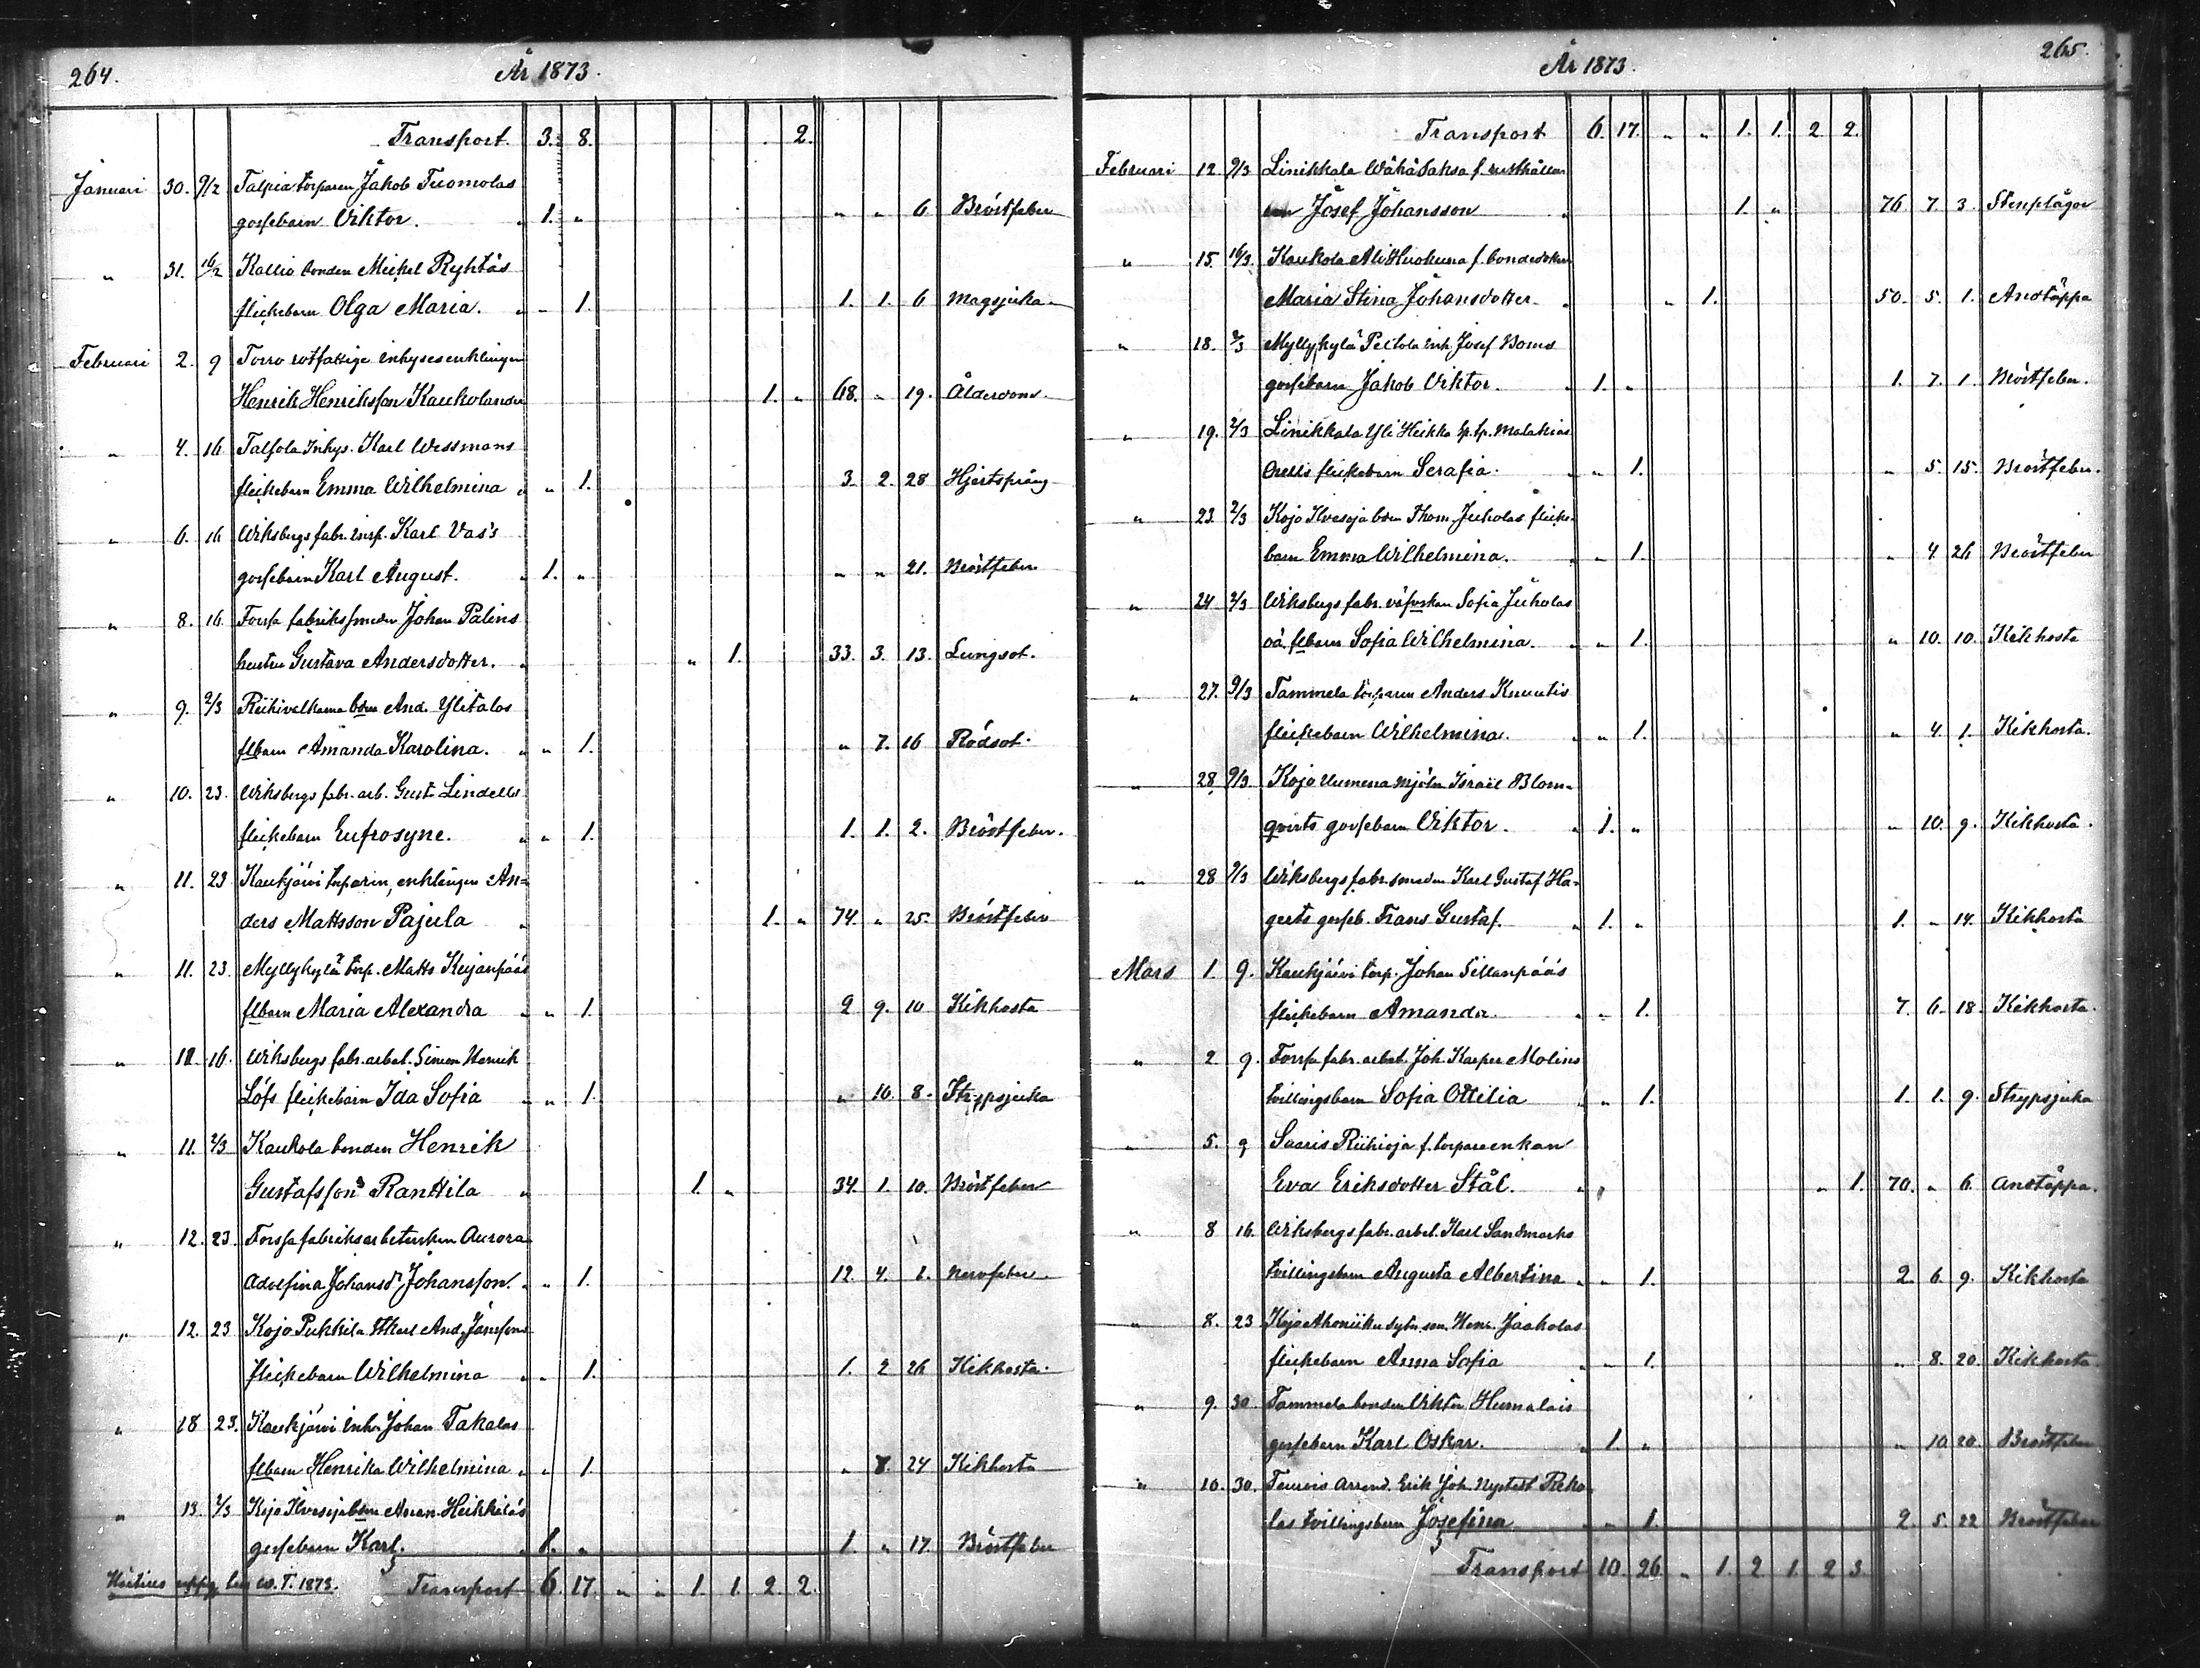 264.
År 1873.
Transport. 3. 8. 2.
Januari 30. 9/2 Talpia torparen Jakob Tuomolas
gossebarn Viktor. " 1. " " " 6 Bröstfeber
" 31. 16/2 Kallio bonden Mickel Ryhtäs
flickebarn Olga Maria. " - 1. 1. 1. 6 Magsjuka
Februari 2. 9 Torro rotfattige inhysesenklingen
Henrik Henriksson Kaukolander 1. " 68. " 19. Ålderdom.
" 4. 16 Talsola Inhys. Karl Wessmans
flickebarn Emma Wilhelmina " " 1. 3. 2. 28 Hjertsprång
" 6. 16 Wiksbergs fabr. insp. Karl Vas's
gossebarn Karl August. " 1. " " " 21. Bröstfeber
" 8. 16. Forssa fabrikssmeden Johan Palins
hustru Gustava Andersdotter. " " 1. 33. 3. 13. Lungsot.
" 9. 2/3 Riihivalkama bdn And. Ylitalos
flbarn Amanda Karolina. " " 1. " 7. 16 Rödsot.
" 10. 23. Wiksbergs fabr. arb. Gust. Lindells
flickebarn Eufrosyne. " " 1. 1. 1. 2. Bröstfeber.
" 11. 23 Kaukjärvi torparen, enklingen An=
ders Mattsson Pajula " 1. " 74. " 25. Bröstfeber
" 11. 23. Myllykylä torp. Matts Kujanpääs
flbarn Maria Alexandra " " 1. 2 9. 10 Kikhosta
" 11 16. Wiksbergs fabr. arbet. Simon Henrik
Löfs flickebarn Ida Sofia " " 1. " 10. 8. Strypsjuka
" 11. 2/3 Kaukola bonden Henrik
Gustafsson Ranttila " 1. " 34. 1. 10. Bröstfeber
" 12. 23. Forssa fabriksarbeterskan Aurora
Adolfina Johansdr Johansson. " " 1. 12. 4. 1. Nervfeber
" 12. 23 Kojo Pukkila And.
flickebarn Wilhelmina " " 1. 1. 2 26 Kikhosta.
" 18 23. Kaukjärvi Inh. Johan Takalas
flbarn Henrika Wilhelmina " " 1. " 8. 24 Kikhosta
" 13. 2/3 Kojo Ilvesoja bdn Heikkiläs
gossebarn Karl. " 1. " 1. " 17. Bröstfeber
1873. Transport 6. 17. " " 1. 1. 2. 2.
265.
År 1873.
Transport 6. 17. " " 1. 1. 2 2.
Februari 12. 9/3 Linikkala WähäSaksa f. rusthållar
Josef Johansson " 1. " 76 7. 3. Stenplågor
" 15. 16/3. Kaukola AliHuohuna f. bondedotter
Maria Stina Johansdotter. " " 1. 50. 5. 1. Andtäppa
" 18. 2/3 Myllykylä Peltola Inh. Josef Boms
gossebarn Jakob Viktor. " 1. " 1. 7. 1. Bröstfeber.
" 19. 2/3 Linikkala Yli Heikka Malakias
flickebarn Serafia. " " 1. " 5. 15. Bröstfeber.
" 23. 2/3 Kojo Ilvesoja bdn Thom. Juholas flicke-
barn Emma Wilhelmina. " " 1. " 4 26 Bröstfeber
" 24 2/3 Wiksbergs fabr. väfverskan Sofia Juholas
oä. flbarn Sofia Wilhelmina. " " 1. " 10. 10. Kikhosta
" 27. 9/3 Tammela torparen Anders Knuutis
flickebarn Wilhelmina. " " 1. " 4. 1. Kikhosta.
" 28 9/3 Kojo Uumena mjöln. Israël Blom-
qvists gossebarn Viktor. " 1. " " 10. 9. Kikhosta.
" 28 9/3 Wiksbergs fabr. smeden Karl Gustaf Ha=
gerts gosseb. Frans Gustaf. " 1. " 1. " 14. Kikhosta
Mars 1. 9. Kaukjärvi torp. Johan Sillanpääs
flickebarn Amanda. " " 1. 7. 6. 18. Kikhosta.
" 2 9. Forssa fabr. arbet. Joh. Kasper Molins
tvillingsbarn Sofia Ottilia " " 1. 1. 1. 9. Strypsjuka
" 5. 9 Saaris Riihioja f. torpareenkan
Eva Eriksdotter Stål. " " 1. 70. " 6 Andtäppa.
" 8 16. Wiksbergs fabr. arbet. Karl Sandmarks
tvillingsbarn Augusta Albertina " " 1. 2. 6. 9. Kikhosta
" 8. 23 Kojo Henr. Jaakolas
flickebarn Anna Sofia " " 1. " 8. 20. Kikhosta
" 9. 30. Tammela bonden Viktor Humalais
gossebarn Karl Oskar. " 1. " " 10 20. Bröstfeber
" 10. 30. Teuro's Arrend. Erik Joh. Reko-
las tvillingsbarn Josefina " " 1. 2. 5. 22 Bröstfeber
Transport 10. 26 " 1. 2 1. 2 3.